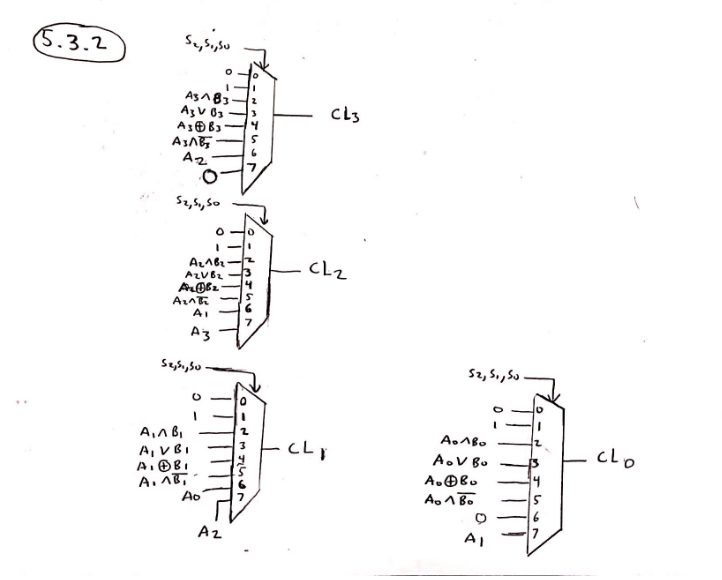 5.3.2
S2,S1,S0
0 0
1 1
A3∧B3 2
A3∨B3 3
A3⊕B3 4
A3∧B̅3̅ 5
A2 6
0 7
CL3
S2,S1,S0
0 0
1 1
A2∧B2 2
A2∨B2 3
A2⊕B2 4
A2∧B̅2̅ 5
A1 6
A3 7
CL2
S2,S1,S0
0 0
1 1
A1∧B1 2
A1∨B1 3
A1⊕B1 4
A1∧B̅1̅ 5
A0 6
A2 7
CL1
S2,S1,S0
0 0
1 1
A0∧B0 2
A0∨B0 3
A0⊕B0 4
A0∧B̅0̅ 5
0 6
A1 7
CL0